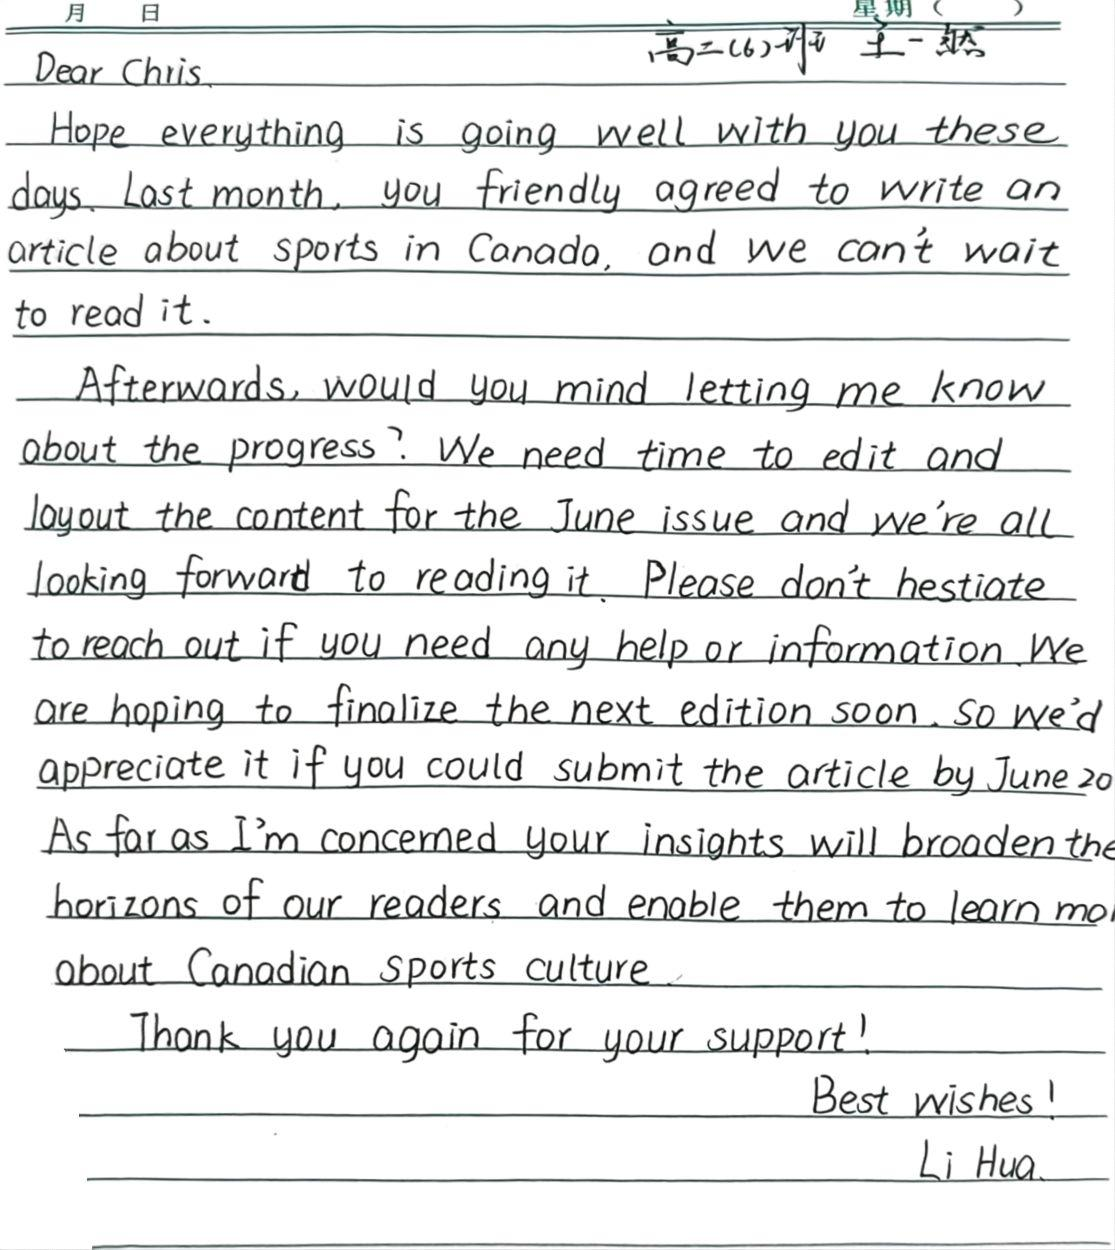 月 日 星期（ ）
高二(6)班 王一然
Dear Chris,
Hope everything is going well with you these
days. Last month, you friendly agreed to write an
article about sports in Canada, and we can't wait
to read it.
Afterwards, would you mind letting me know
about the progress? We need time to edit and
layout the content for the June issue and we're all
looking forward to reading it. Please don't hestiate
to reach out if you need any help or information. We
are hoping to finalize the next edition soon. So we'd
appreciate it if you could submit the article by June 20
As far as I'm concerned your insights will broaden the
horizons of our readers and enable them to learn mor
about Canadian sports culture.
Thank you again for your support!
Best wishes!
Li Hua.